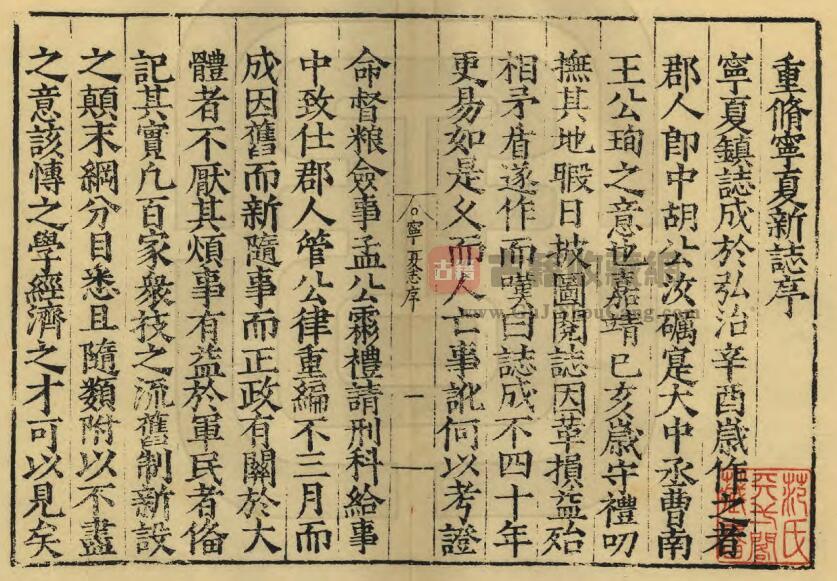 重脩寧夏新誌序
寧夏鎮誌成於弘治辛酉歲作之者
郡人郎中胡公汝礪寔大中丞曹南
王公珣之意也嘉靖己亥歲守禮叨
撫其地暇日披圖閱誌因革損益殆
相矛盾遂作而嘆曰誌成不四十年
更易如是乆而人亡事訛何以考證
寧夏志序
一
命督粮僉事孟公霦禮請刑科給事
中致仕郡人管公律重編不三月而
成因舊而新隨事而正政有關於大
體者不厭其煩事有益於軍民者俻
記其實凢百家衆技之流舊制新設
之顛末綱分目悉且隨類附以不盡
之意該愽之學經濟之才可以見矣
古籍
范氏天一閣藏書